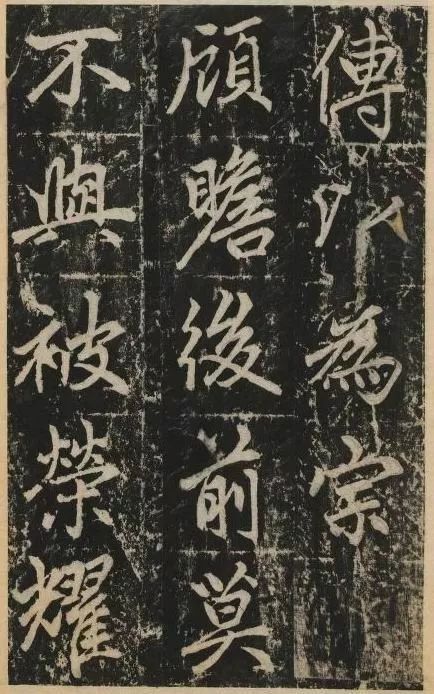 傳以為宗
顧瞻後前莫
不與被榮耀